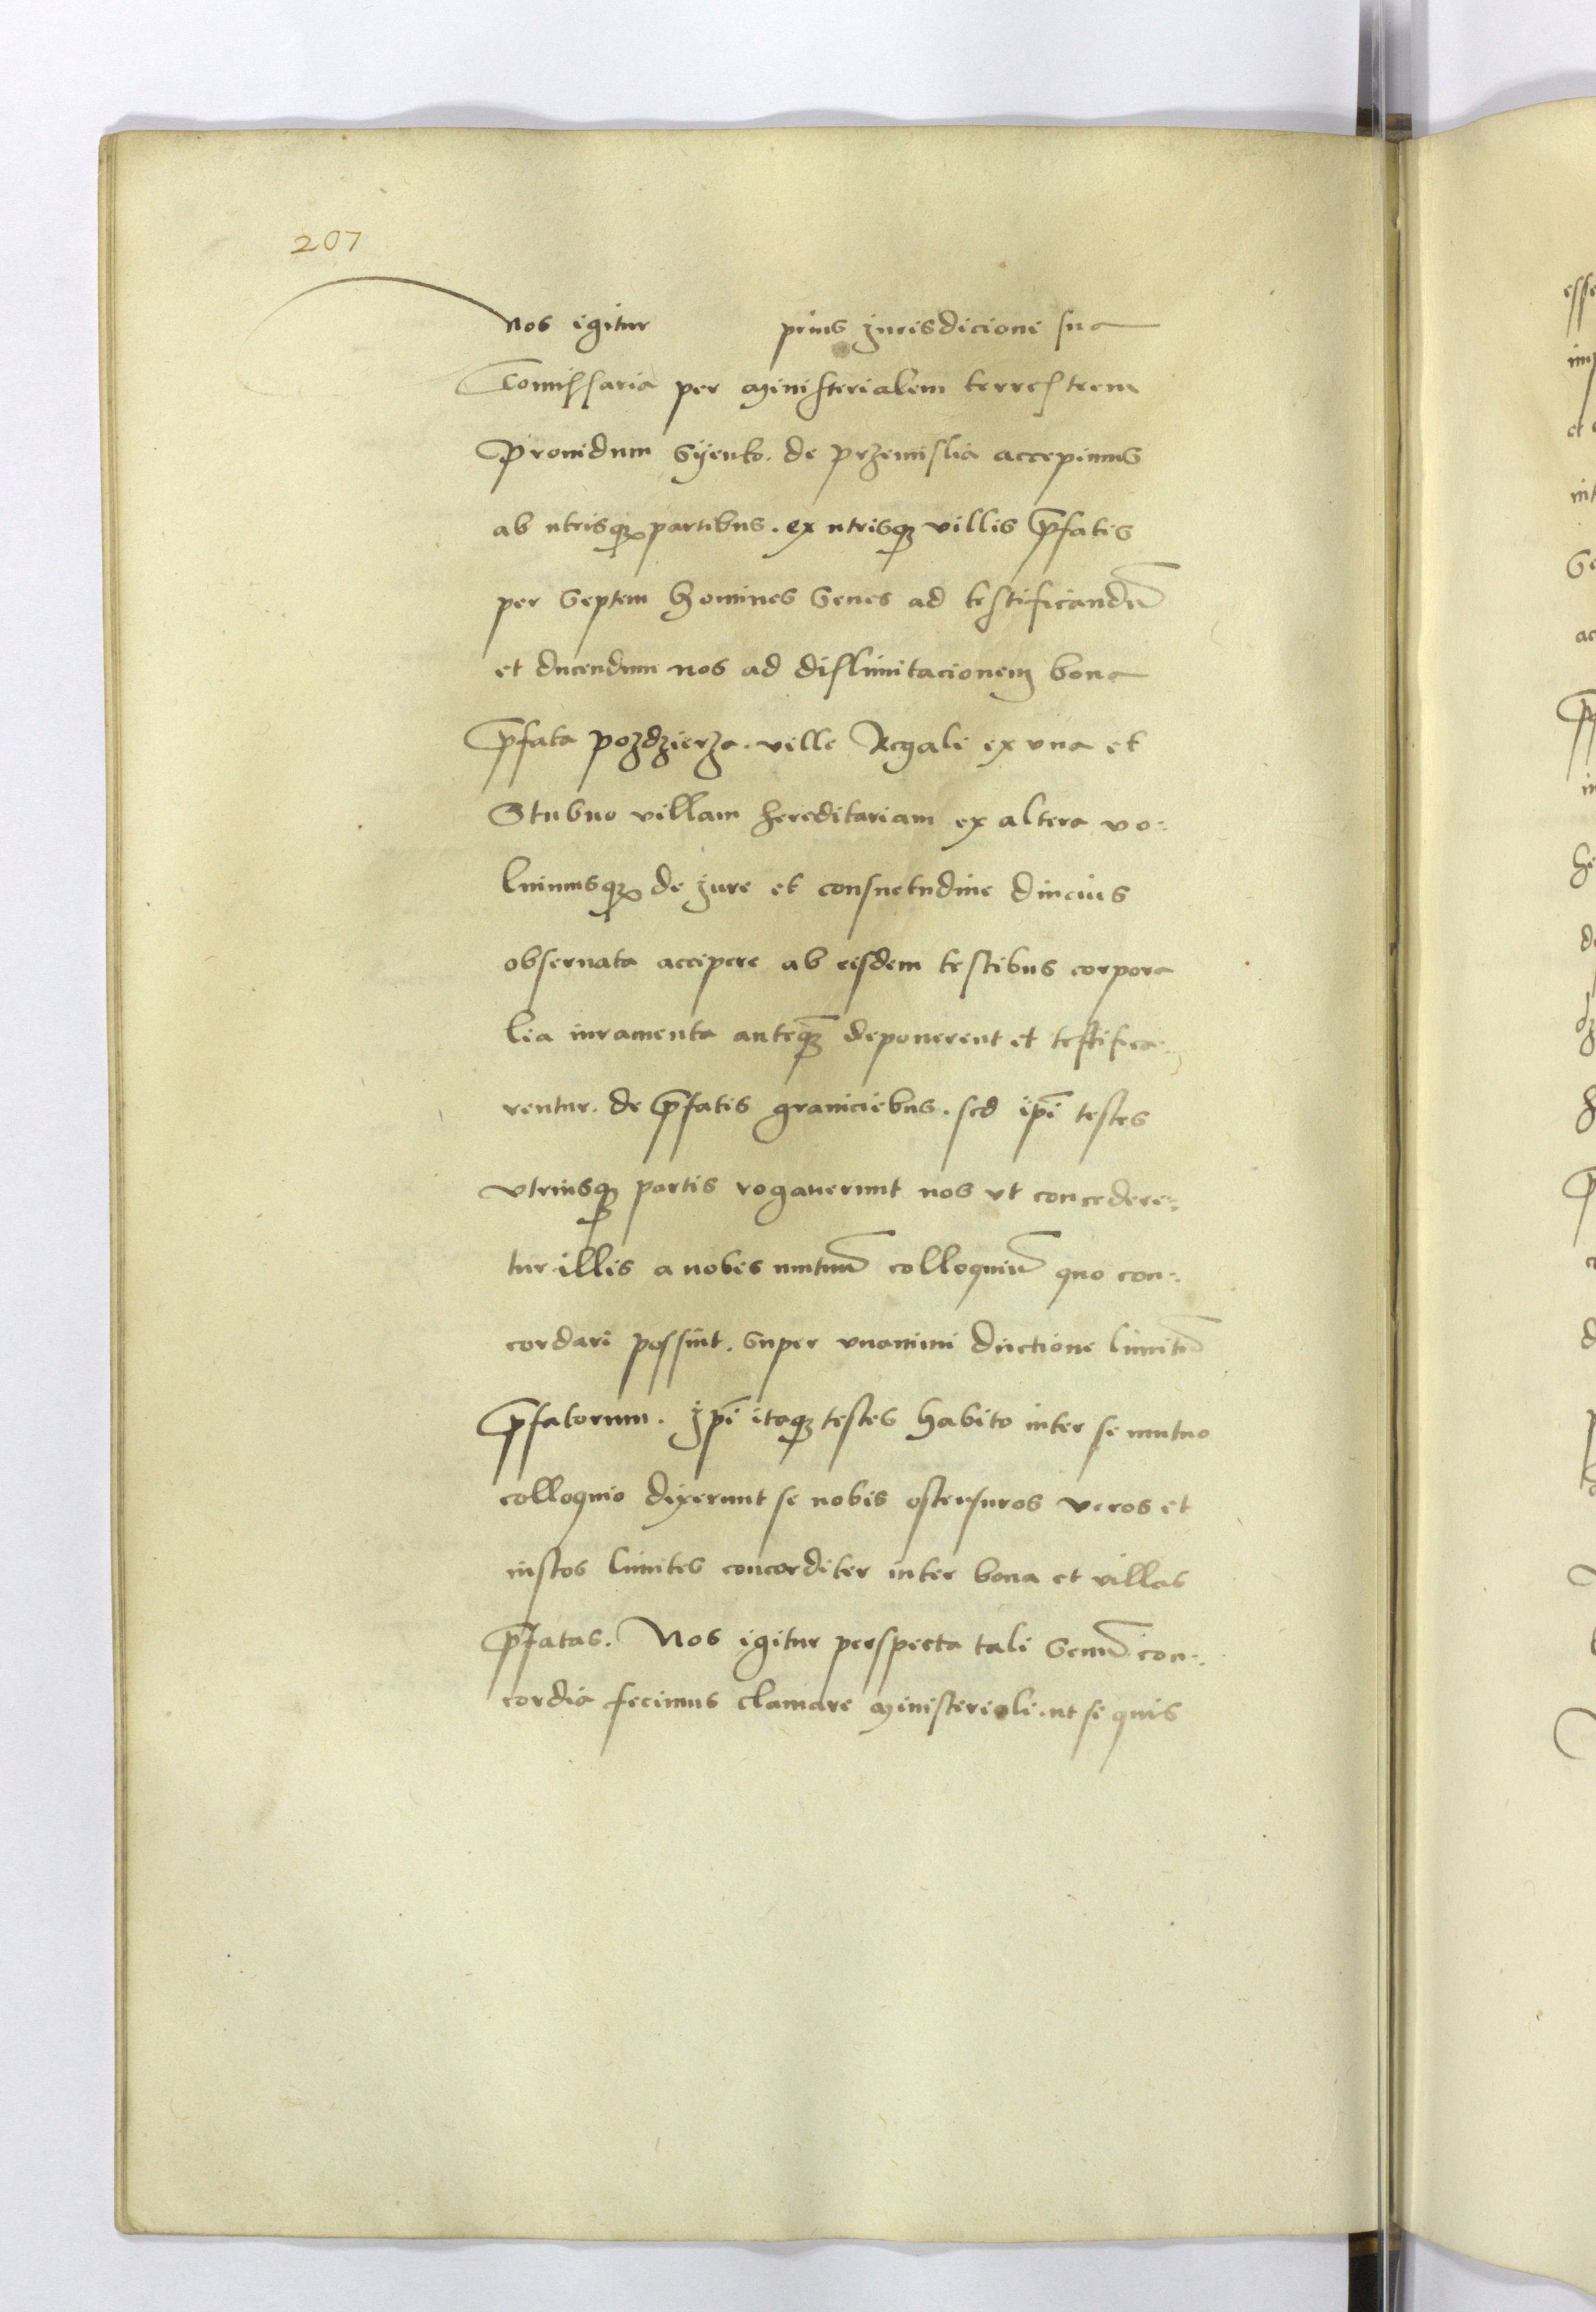 207
Nos igitur prius jurisdicioni sua
Comissaria per ministerialem terrestrem
Providum Syenko. de przemislia accepimus
ab utrisq partibus. ex utrisq villis p̄fatis
per Septem homines Senes ad testificandū
et ducendum nos ad dislimitacionem bona
p̄fata pozdzierza. ville Regali ex vna et
Stubno villam hereditariam ex altera vo:
luimusq de jure et consuetudine diucius
obseruata accipere ab eisdem testibus corpora
lia iuramenta anteq̄ deponerent et testifica:
rentur. de p̄fatis graniciebus. sed ip̄i testes
vtriusq partis rogauerunt nos vt concedere:
tur illis a nobis mutuū colloquiū quo con:
cordari possint. Super vnanimi ductione limitū
p̄fatorum. jp̄i itaq testes habito inter se mutuo
colloquio dixerunt se nobis ostensuros veros et
iustos limites concorditer inter bona et villas
p̄fatas. Nos igitur perspecta tali Senū con:
cordia fecimus clamare ministeriali. ut si quis